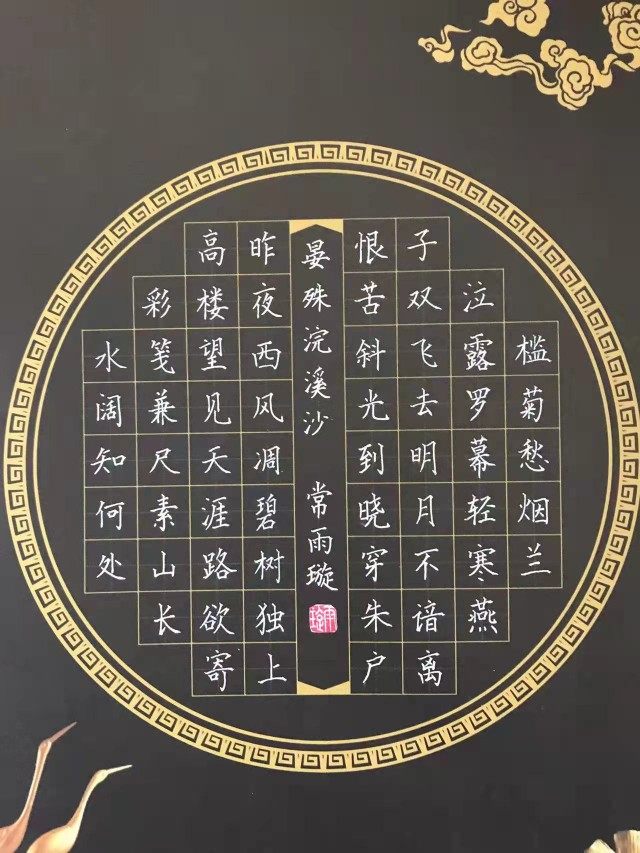 槛菊愁烟兰
泣露罗幕轻寒燕
子双飞去明月不谙离
恨苦斜光到晓穿朱户
晏殊浣溪沙 常雨璇
昨夜西风凋碧树独上
高楼望见天涯路欲寄
彩笺兼尺素山长
水阔知何处